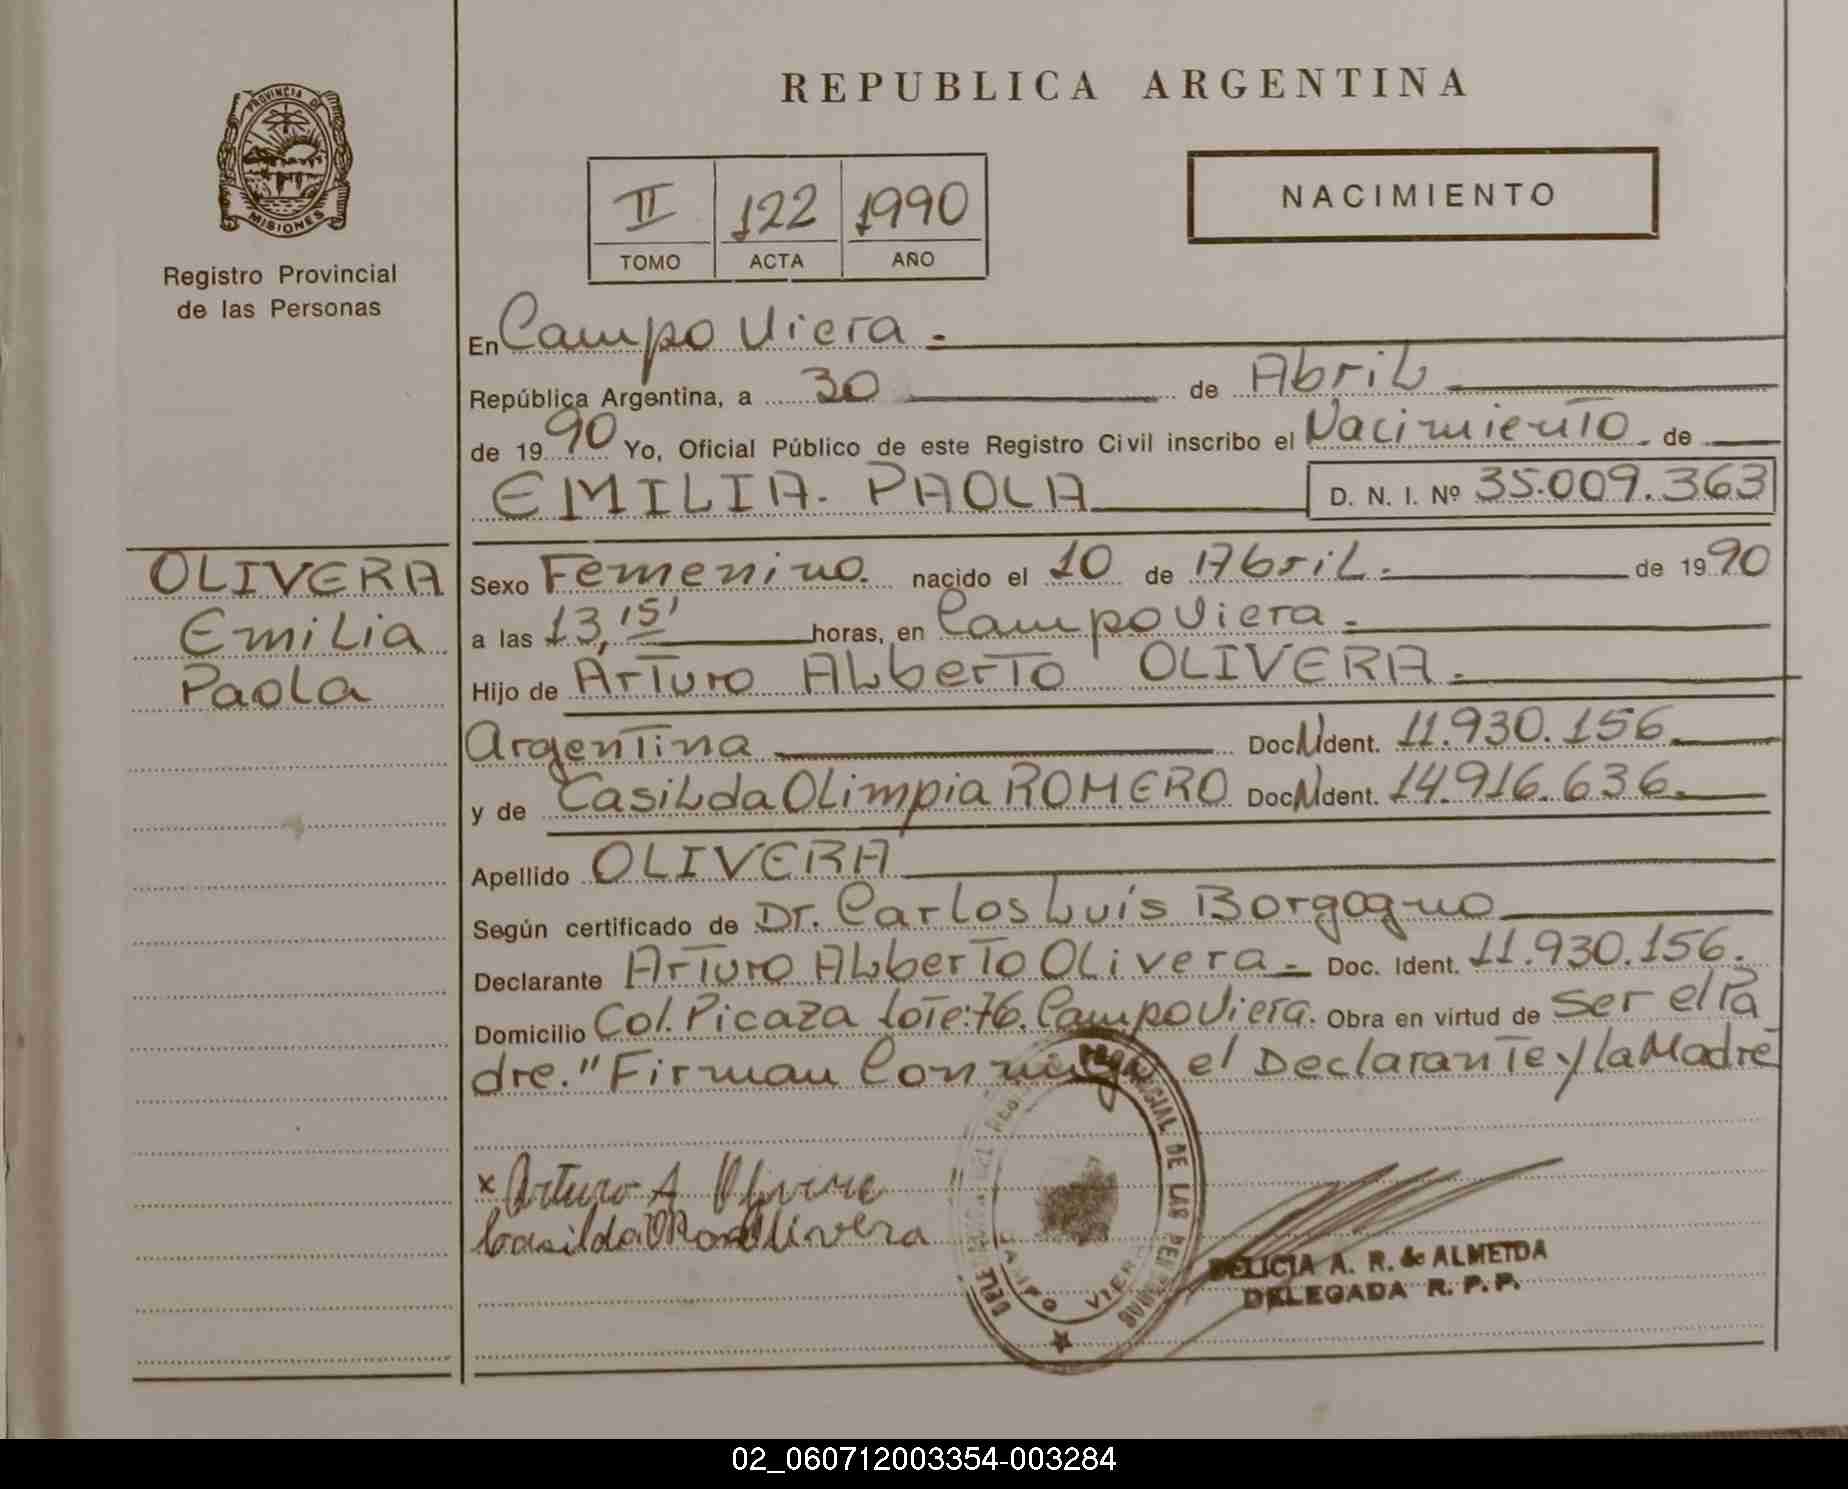 REPUBLICA ARGENTINA
PROVINCIA DE
MISIONES
Registro Provincial
de las Personas
II 122 1990
TOMO ACTA AÑO
NACIMIENTO
En Campo Viera.-
República Argentina, a 30 de Abril
de 1990 Yo, Oficial Público de este Registro Civil inscribo el Nacimiento de
EMILIA. PAOLA D. N. I. Nº 35.009.363
OLIVERA
Emilia
Paola
Sexo Femenino. nacido el 10 de Abril. de 1990
a las 13,15' horas, en Campo Viera.
Hijo de Arturo Alberto OLIVERA.
Argentina Doc. Ident. 11.930.156.
y de Casilda Olimpia ROMERO Doc. Ident. 14.916.636.
Apellido OLIVERA
Según certificado de Dr. Carlos Luís Borgogno
Declarante Arturo Alberto Olivera.- Doc. Ident. 11.930.156.
Domicilio Col. Picaza Lote:76. Campo Viera. Obra en virtud de ser el Pa
dre." Firman Conmigo el Declarante y la Madre
x Arturo A Olivera "
Casilda Olivera
PROVINCIAL DE LAS PERSONAS
CAMPO VIERA
DELICIA A. R. de ALMEIDA
DELEGADA R. P. P.
02_060712003354-003284